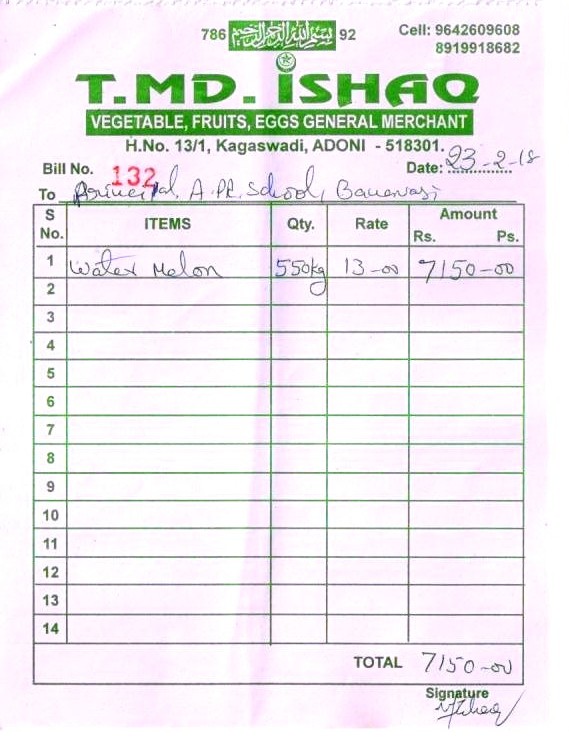 786 بسم الله الرحمن الرحيم 92
Cell: 9642609608
8919918682
T.MD. ISHAQ
VEGETABLE, FRUITS, EGGS GENERAL MERCHANT
H.No. 13/1, Kagaswadi, ADONI - 518301.
Bill No. 132 Date: 23-2-18
To Principal, A.P.R. School, Banavasi
S No. ITEMS Qty. Rate Amount
Rs. Ps.
1 Water Melon 550kg 13-00 7150-00
2
3
4
5
6
7
8
9
10
11
12
13
14
TOTAL 7150-00
Signature